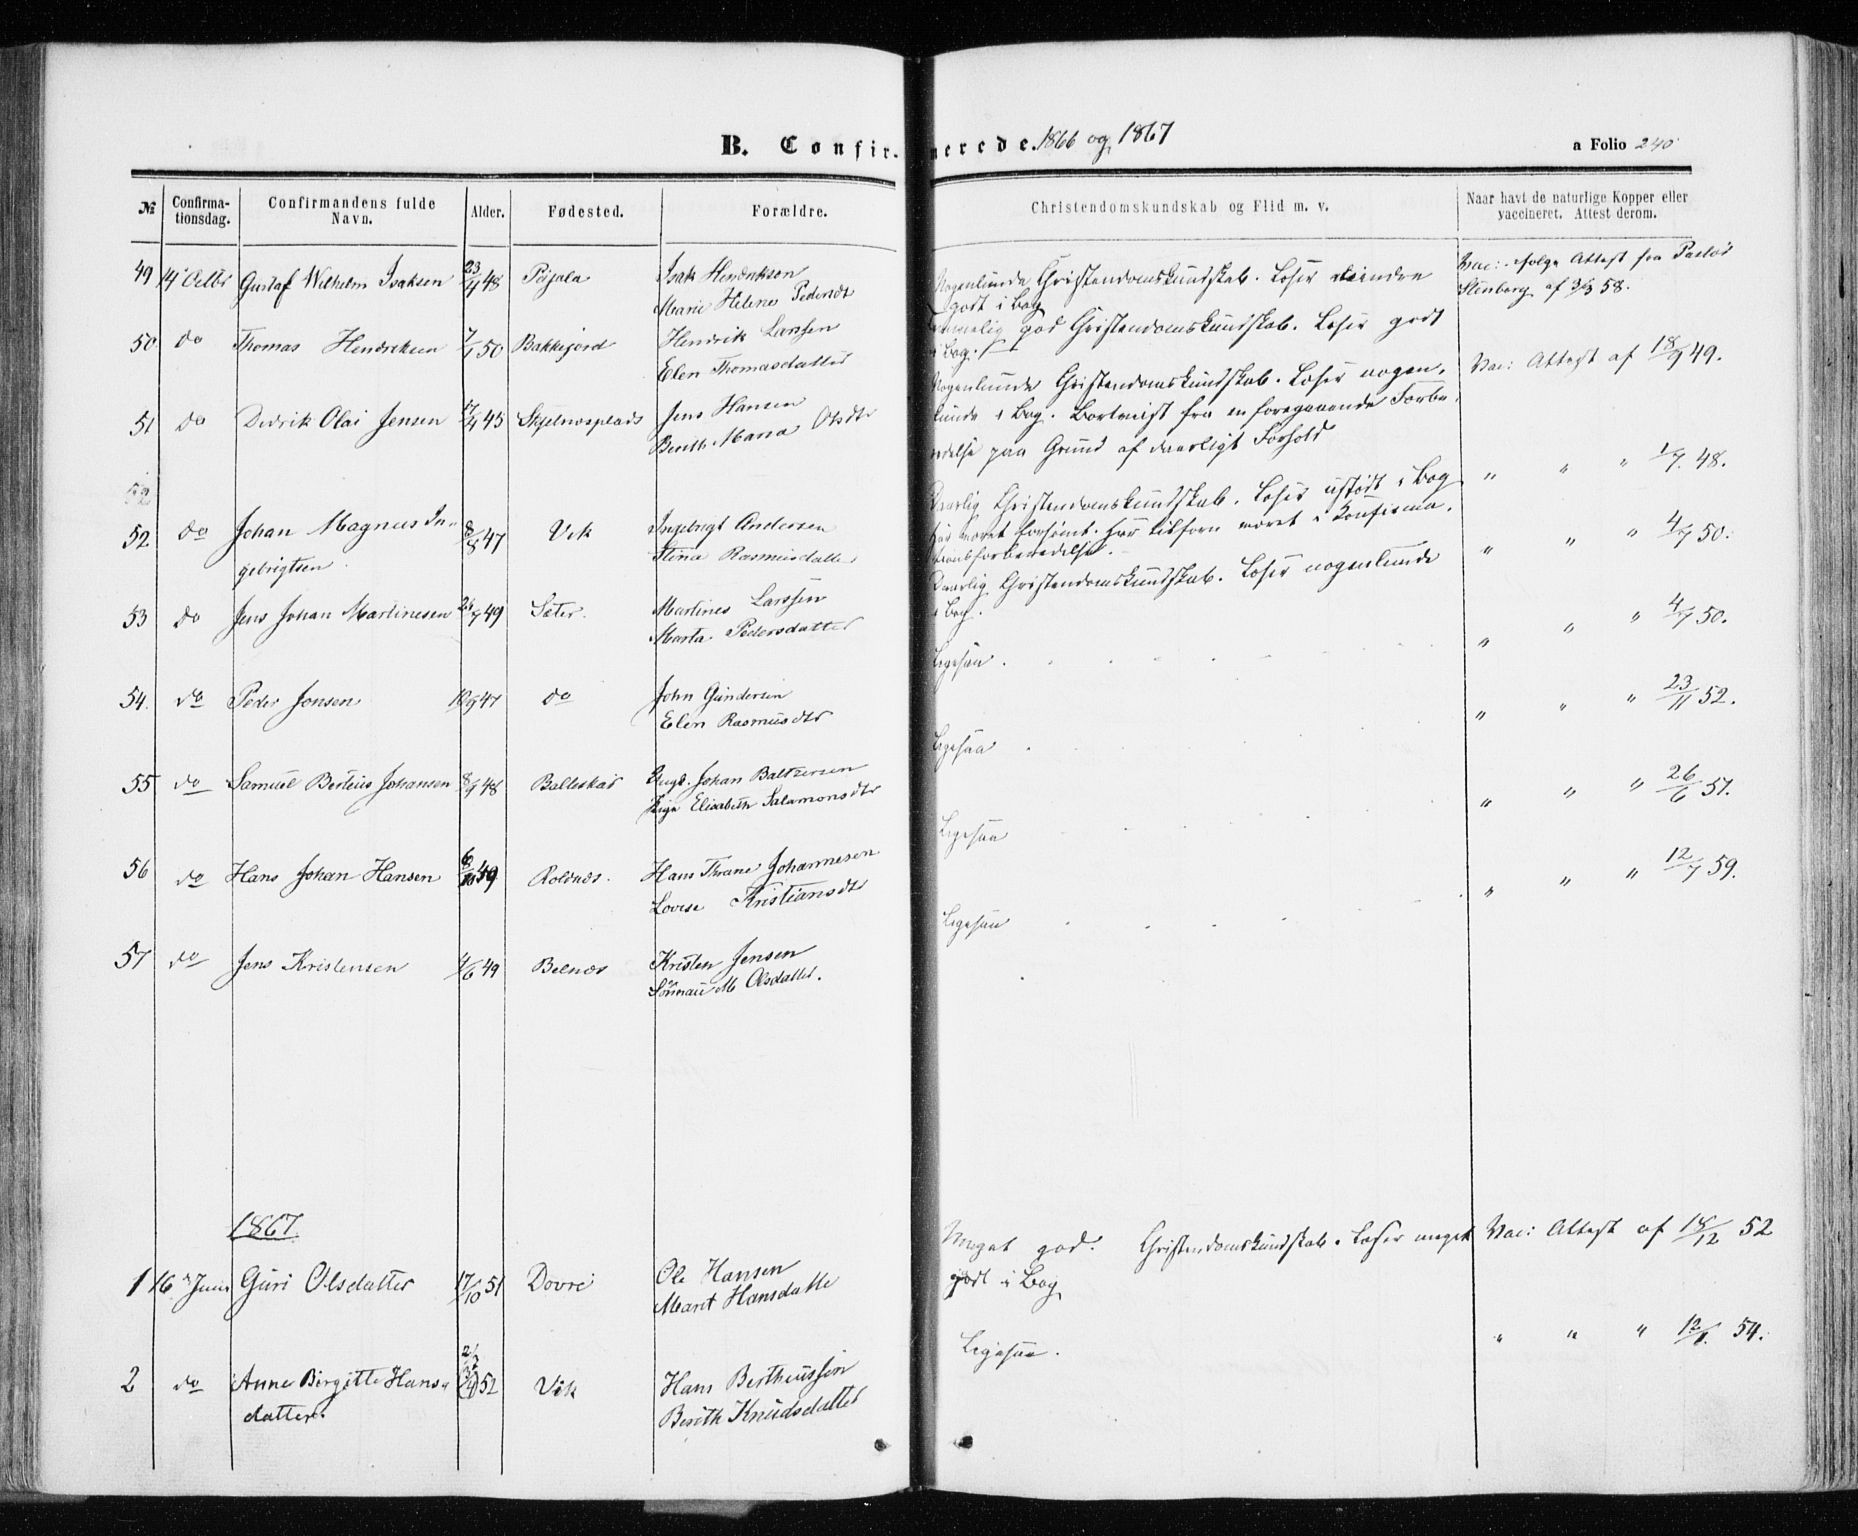 B. Confirmerede. 1866 og 1867
a Folio 240
№ Confirmationsdag. Confirmandens fulde Navn. Alder. Fødested. Forældre. Christendomskundskab og Flid m. v. Naar havt de naturlige Kopper eller vaccineret. Attest derom.
49 14 Octbr Gustaf Wilhelm Isaksen 23/4 48 Pajala Isak Hendrikson
Marie Helene Pedersdt
Nogenlunde Christendomskundskab. Læser mindre
godt i Bog
Vac: ifølge Attest fra Pastor
Stenberg af 58.
50 do Thomas Hendriksen 7/1 50 Bakkejord Hendrik Larssen
Elen Thomasdatter
Temmelig god Christendomskundskab. Læser godt
i Bog.
Vac: Attest af 18/9 49.
51 do Didrik Olai Jensen 17/4 45 Skjelnesplads Jens Hansen
Berith Maria Olsdtr
Nogenlunde Christendomskundskab. Læser nogen-
lunde i Bog. Bortvist fra en foregaaende Forbe-
redelse paa Grund af daarligt Forhold
" " " 1/7 48.
52 do Johan Magnus In-
gebrigtsen 8/8 47 Vik Ingebrigt Andersen
Stina Rasmusdatter
Daarlig Christendomskundskab. Læser ustødt i Bog
Har været forsømt. Har tilforn været i Konfirma-
tionsforberedelse.
" " " 4/7 50.
53 do Jens Johan Martinesen 26/7 49 Sæter. Martines Larssen
Marta Pedersdatter
Daarlig Christendomskundskab. Læser nogenlunde
i Bog.
" " " 4/7 50.
54. do Peder Jonsen 10/9 47 do John Gundersen
Elen Rasmusdtr
Ligesaa.
" " " 23/11 52.
55 do Samuel Berteus Johansen 8/9 48 Balteskar Ungk. Johan Baltzersen
Pige Elisabeth Salamonsdtr
Ligesaa
" " " 26/6 51.
56 do Hans Johan Hansen 6/10 49 Roldnæs. Hans Thrane Johannesen
Lovise Kristiansdt
Ligesaa
" " " 12/7 59.
57 do Jens Kristensen 4/6 49 Belnæs Kristen Jensen
M Olsdatter.
Ligesaa
1867
1 16 Juni Guri Olsdatter 17/10 51 Dovre Ole Hansen
Marit Hansdatte
Meget god Christendomskundskab. Læser meget
godt i Bog
Vac: Attest af 18/12 52
2 do Anne Birgitte Hans-
datter. 52 Vik Hans Bertheussen
Berith Knudsdatter
Ligesaa.
" " " 12/8. 54.